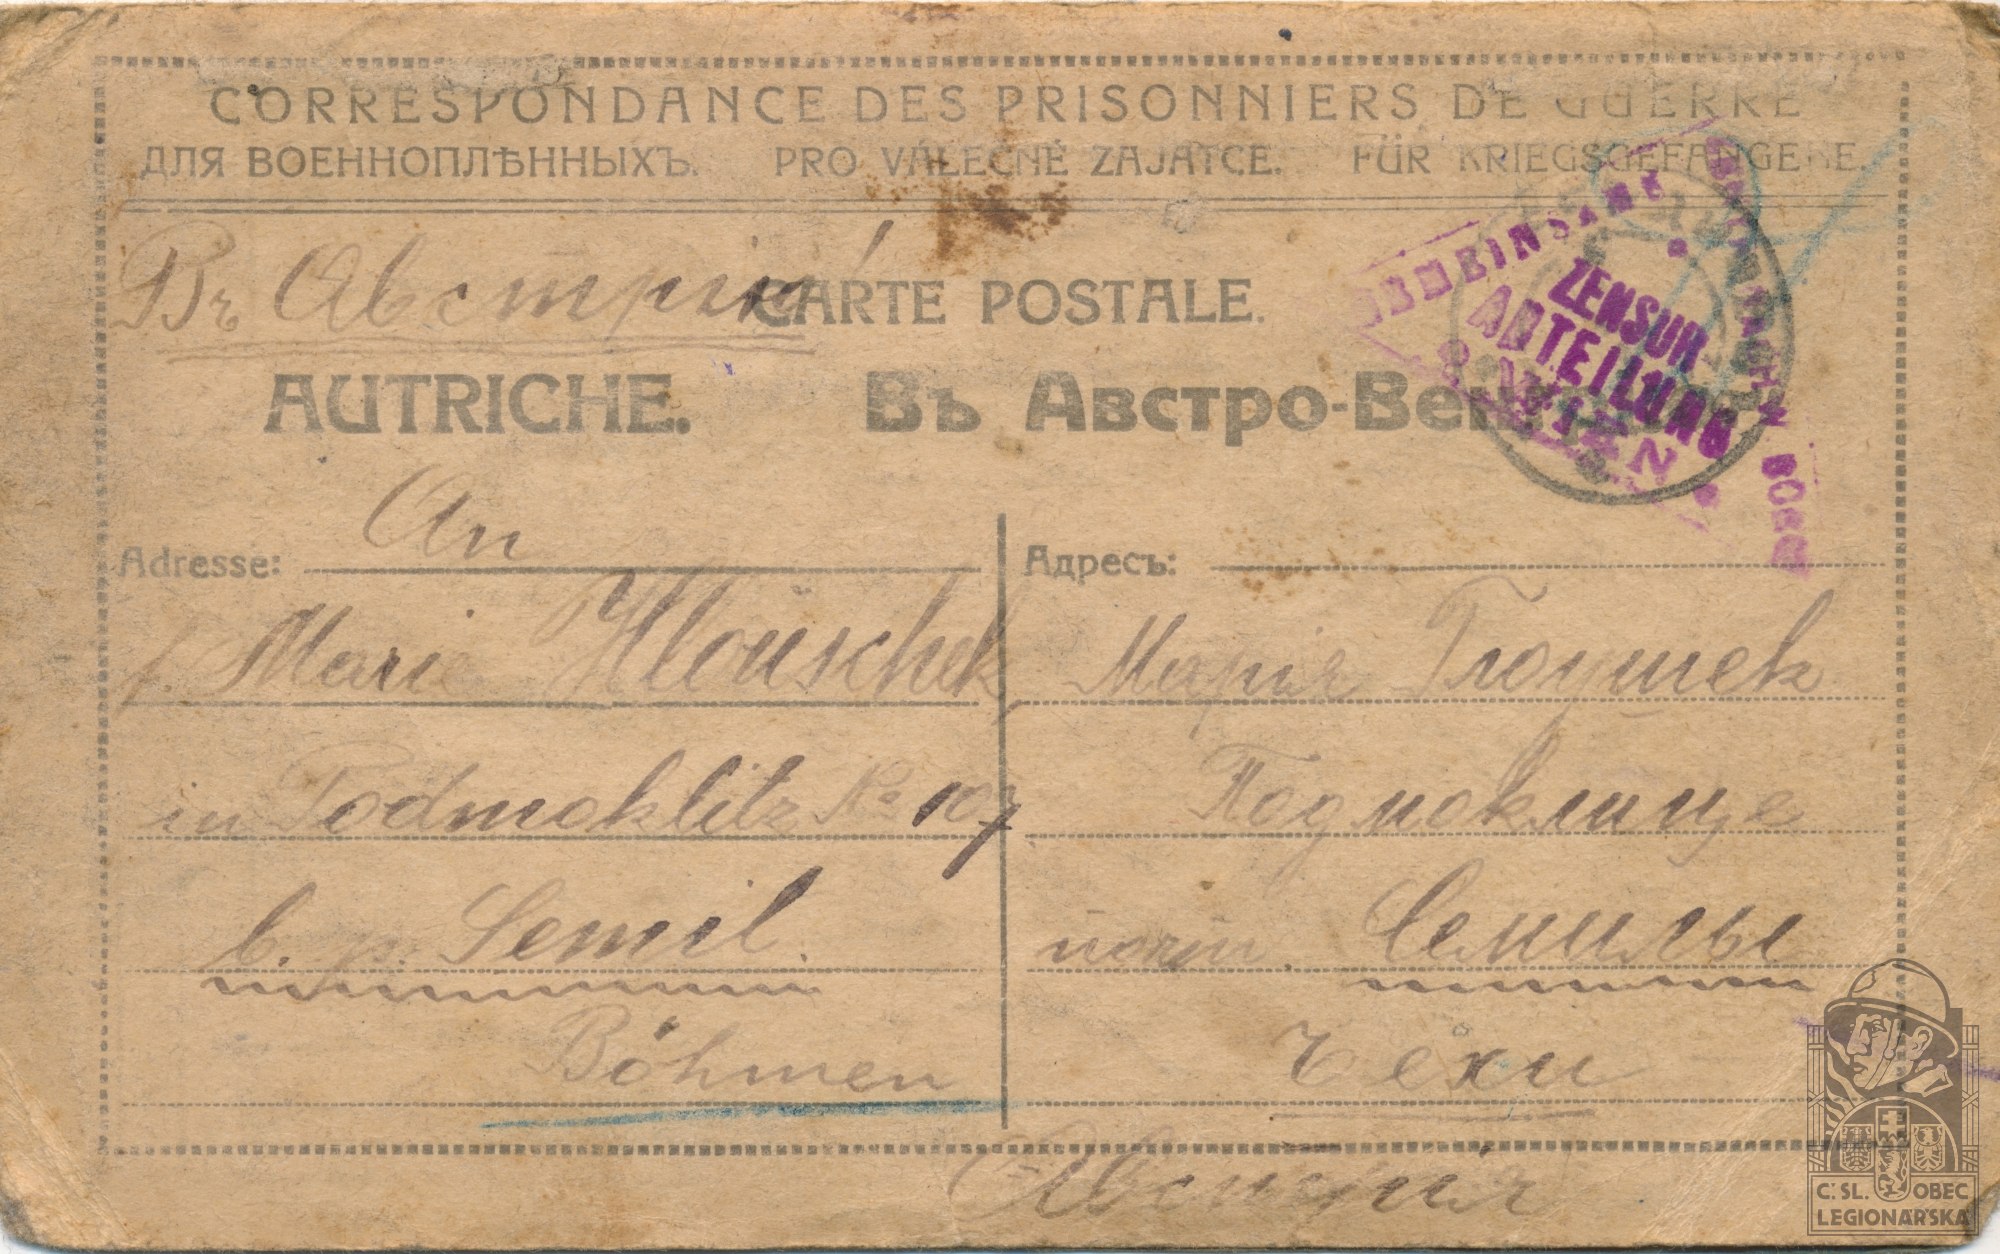 CORRESPONDANCE DES PRISONNIERS DE GUERRE
ДЛЯ ВОЕННОПЛѢННЫХЪ. PRO VÁLEČNÉ ZAJATCE. FÜR KRIEGSGEFANGENE.
Въ Австрію
CARTE POSTALE.
AUTRICHE. Въ Австро-Венгрію
ZENSUR-
ABTEILUNG
WIEN
An
Adresse:
f. Marie Hloušchek
in Podmoklitz No 107
b. p. Semil.
Böhmen
Адресъ:
Марія Глоушек
Подмоклице
почт. Семилы
Чехи
Австрія
Č. SL. OBEC
LEGIONÁŘSKÁ